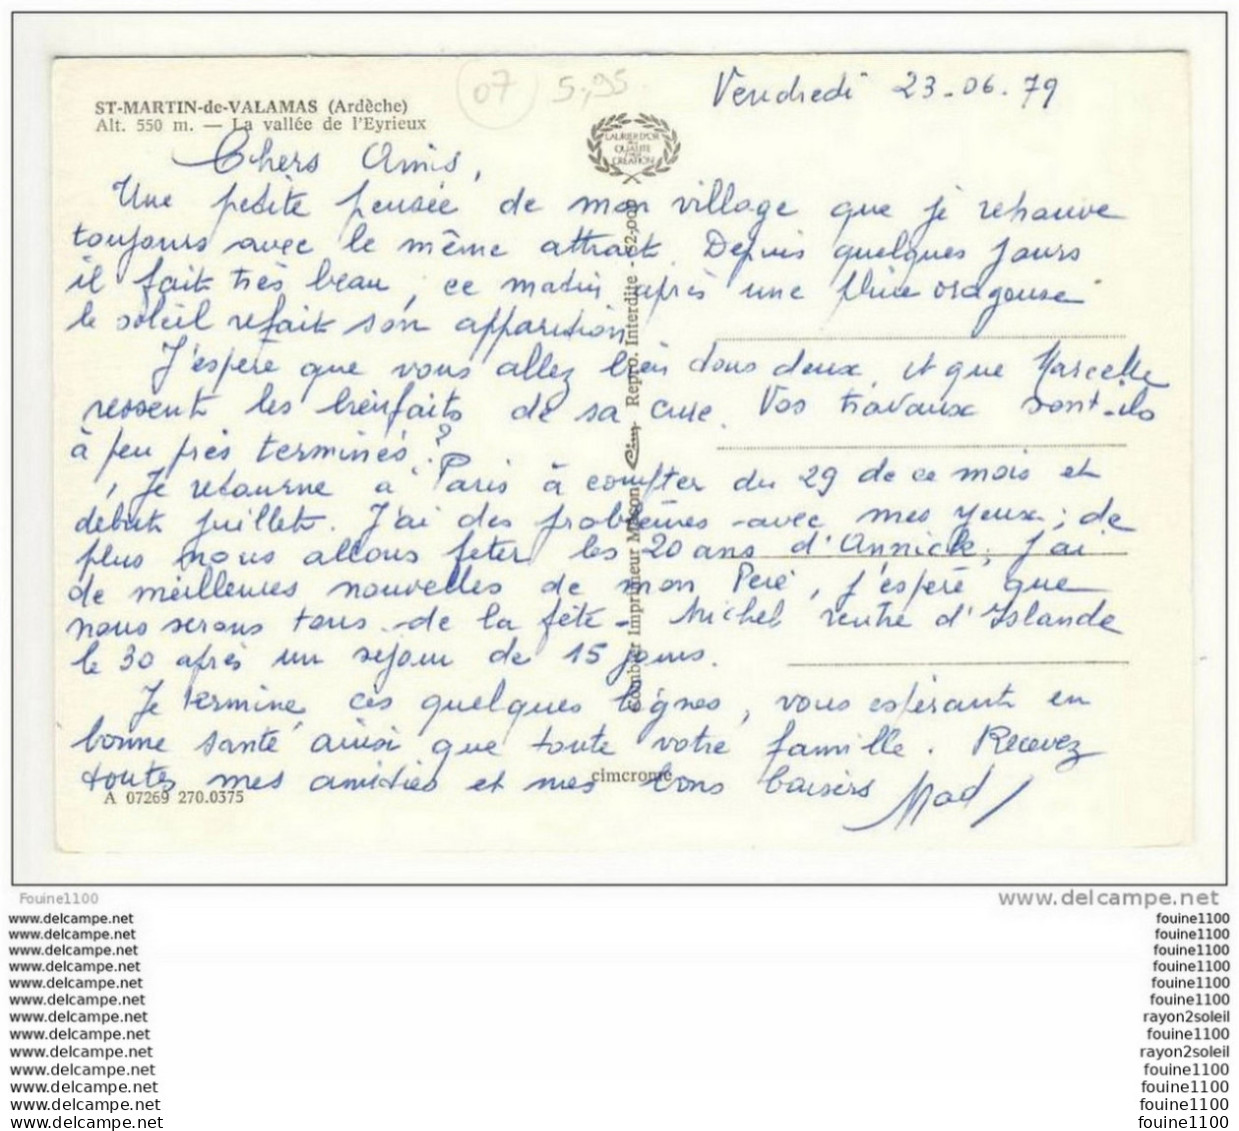 Vendredi 23-06-79
07 5,95
ST-MARTIN-de-VALAMAS (Ardèche)
Alt. 550 m. — La vallée de l'Eyrieux
LAURIER D'OR
DE LA
QUALITÉ
CRÉATION
Chers Amis,
Une petite pensée de mon village que je retrouve
toujours avec le même attrait. Depuis quelques jours
il fait très beau, ce matin après une pluie orageuse
le soleil refait son apparition.
J'espère que vous allez bien tous deux, et que Marcelle
ressent les bienfaits de sa cure. Vos travaux sont-ils
à peu près terminés ?
Je retourne à Paris à compter du 29 de ce mois et
début juillet. J'ai des problèmes avec mes yeux ; de
plus nous allons fêter les 20 ans d'Annick, j'ai
de meilleures nouvelles de mon Père, j'espère que
nous serons tous de la fête - Michel rentre d'Islande
le 30 après un séjour de 15 jours.
Je termine ces quelques lignes, vous espérant en
bonne santé ainsi que toute votre famille. Recevez
toutes mes amitiés et mes bons baisers Mad
Combier Imprimeur Mâcon Cim Repro. Interdite - S2-000
cimcrome
A 07269 270.0375
Fouine1100 www.delcampe.net
www.delcampe.net fouine1100
www.delcampe.net fouine1100
www.delcampe.net fouine1100
www.delcampe.net fouine1100
www.delcampe.net fouine1100
www.delcampe.net fouine1100
www.delcampe.net rayon2soleil
www.delcampe.net fouine1100
www.delcampe.net rayon2soleil
www.delcampe.net fouine1100
www.delcampe.net fouine1100
www.delcampe.net fouine1100
www.delcampe.net fouine1100